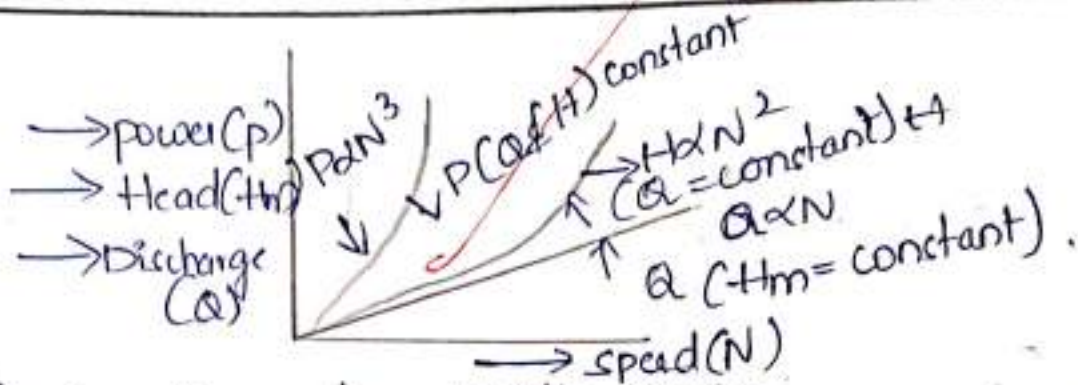 → power(P)
→ Head(Hm)
→ Discharge
(Q)
P∝N³
P(Q & H) constant
→ H∝N²
(Q = constant) H
Q∝N
Q (Hm = constant).
→ speed(N)